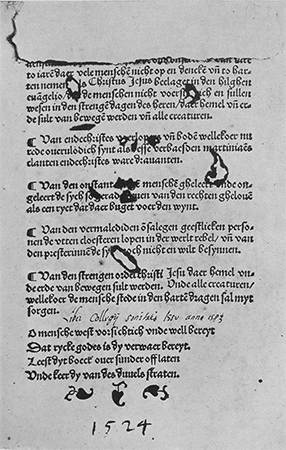 to iarē daer vele menschē nicht op en denckē vn̄ to har-
ten nemen als Christus Jesus beclaget in den hilghen
euāgelio/ de menschen nicht vorst en sullen
wesen in den strengē dagen des heren/ daer hemel vn̄ er-
de sult van bewegē werden vn̄ alle creaturen.
¶ Van endechristes vn̄ bodē welleker met
rede onuerlodich synt als desse verhaesden martinians
clanten endechristes ware drauanten.
¶ Van den menschē gheleert vnde on-
geleert de sych so van den rechten ghelouē
als een ryet dat daer buget voer den wynt.
¶ Van den vermaldiden vnsalegen geestlicken perso-
nen de vtten cloesteren lopen in der werlt vn̄ van
den presteren de sy noch nicht en wilt besynnen.
¶ Van den strengen ordel christi Jesu daer hemel vn-
de erde van bewegen sult werden. Vnde alle creaturen/
welleker de mensche stede in den hartē dragen sal myt
sorgen.
Collegij Societatis Jesu anno
O mensche west vorsichtich vnde well bereyt
Dat rycke godes is dy verwaer bereyt.
Leest dyt boeck ouer sunder oflaten
Vnde keer dy van des duuels straten.
1524